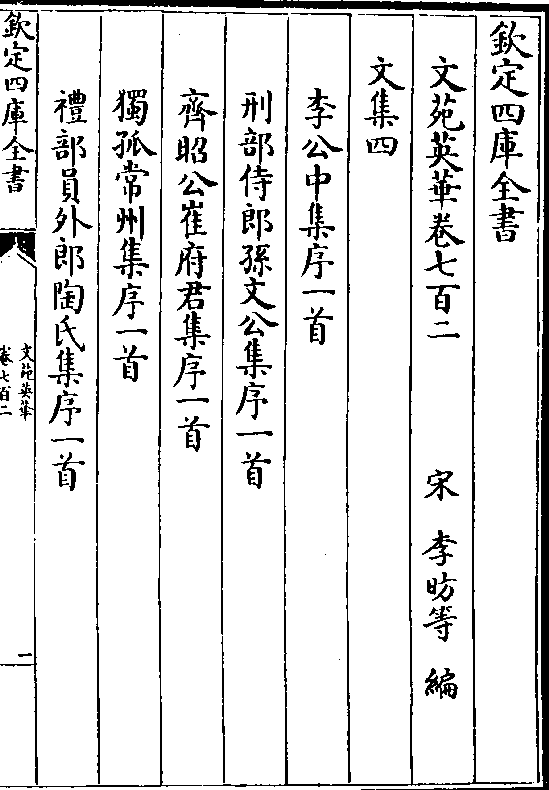 欽定四庫全書
文苑英華卷七百二
宋 李昉等 編
文集四
李公中集序一首
刑部侍郎孫文公集序一首
齊昭公崔府君集序一首
獨孤常州集序一首
禮部員外郎陶氏集序一首
欽定四庫全書
文苑英華
卷七百二
一